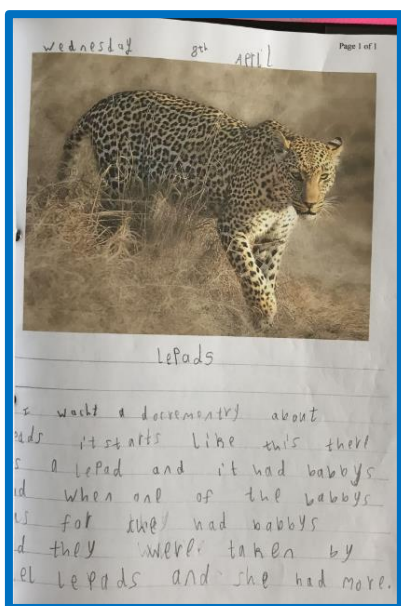 Wednesday 8th April
Page 1 of 1
LePads
I wacht a docrementry about
eads it starts like this there
s a lePad and it had babbys
d when one of the babbys
s for they had babbys
d they were taken by
el lePads and she had more.